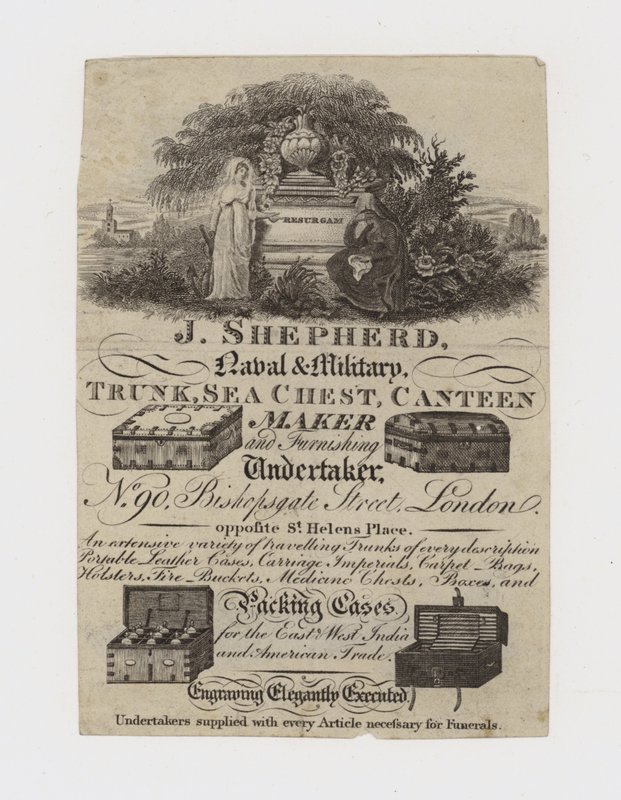 RESURGAM
J. SHEPHERD,
Naval & Military,
TRUNK, SEA CHEST, CANTEEN
MAKER
and Furnishing
Undertaker,
No. 90, Bishopsgate Street, London.
oppoſite St. Helens Place.
An extensive variety of travelling Trunks of every description
Portable Leather Cases, Carriage Imperials, Carpet Bags,
Holsters, Fire Buckets, Medicine Chests, Boxes, and
Packing Cases
for the East & West India
and American Trade.
Engraving Elegantly Executed
Undertakers supplied with every Article neceſsary for Funerals.